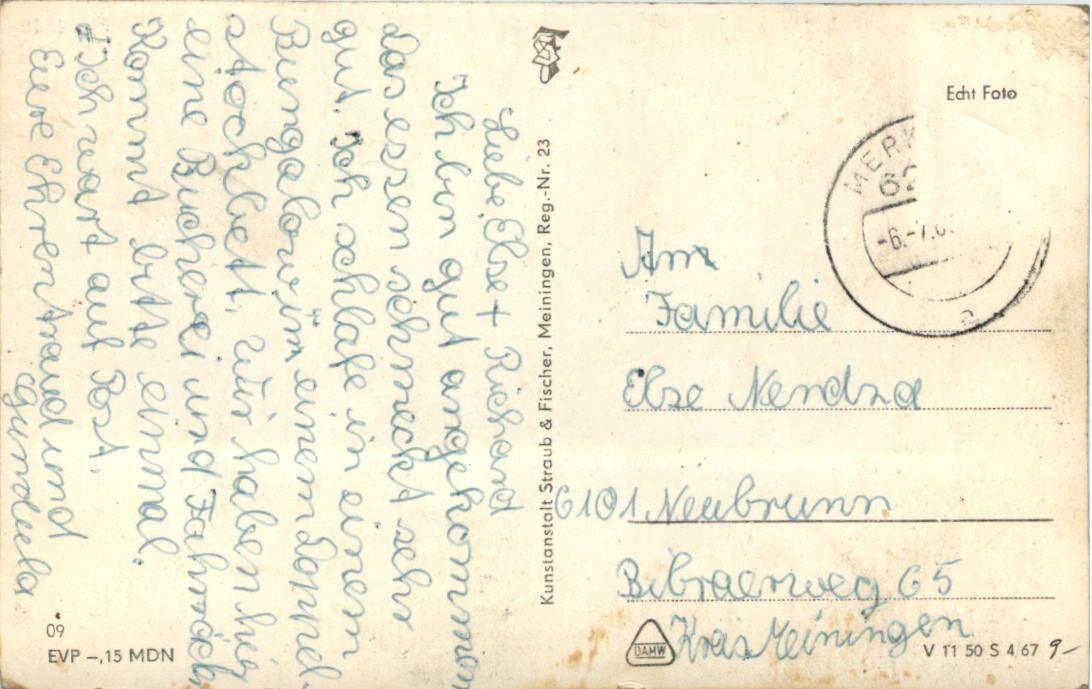 Liebe Else + Richard
Ich bin gut angekommen
das essen schmeckt sehr
gut. Ich schlafe in einem
Bungalow in einem Doppel-
stockbett, wir haben hir
eine Bücherei und Fahrräder
Kommt bitte einmal.
Ich wart auf Post.
Eure Ehrentraud und
Gundula
09
EVP –,15 MDN
Kunstanstalt Straub & Fischer, Meiningen, Reg.-Nr. 23
Echt Foto
MERK
62
-6.-7.6
a
An
Familie
Else Nendza
6101 Neubrunn
Bibraerweg 65
Kreis Meiningen
DAMW
V 11 50 S 4/67
9–